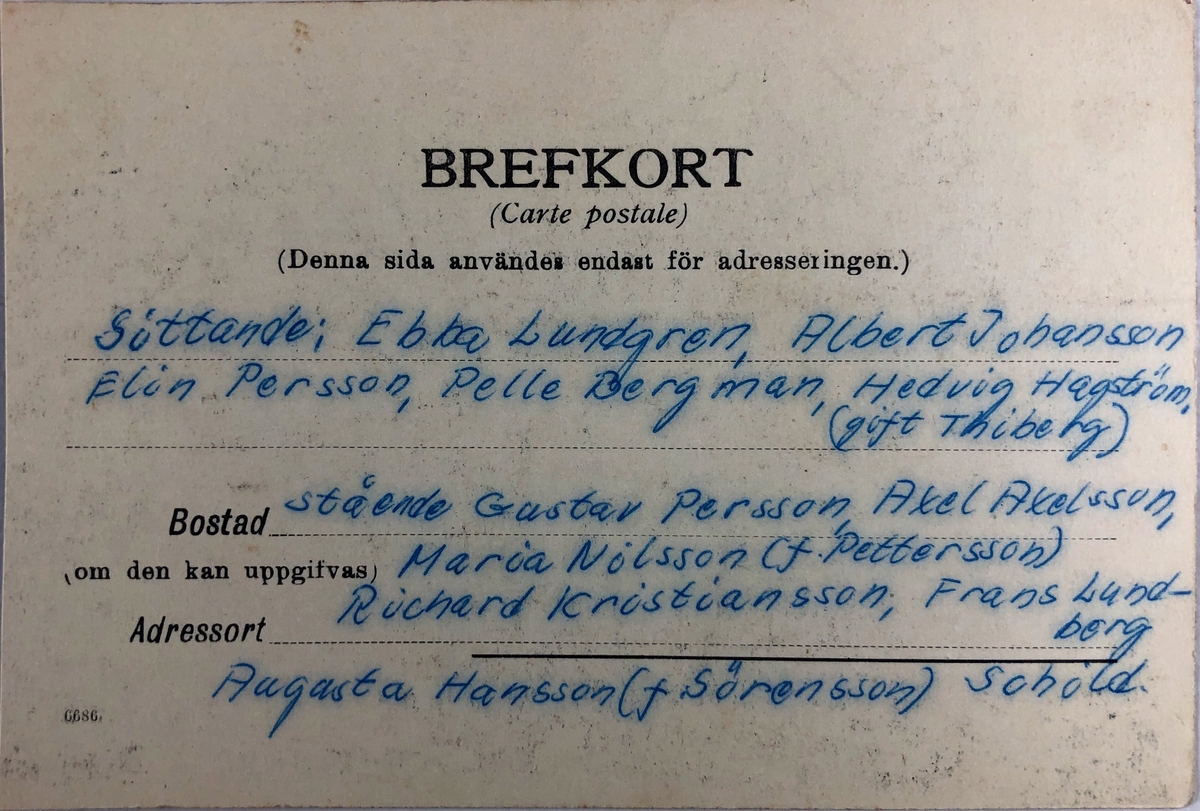 BREFKORT
(Carte postale)
(Denna sida användes endast för adresseringen.)
Sittande; Ebba Lundgren, Albert Johansson
Elin Persson, Pelle Bergman, Hedvig Hagström,
(gift Thiberg)
stående Gustav Persson, Axel Axelsson,
Bostad
Maria Nilsson (f. Pettersson)
(om den kan uppgifvas)
Richard Kristiansson, Frans Lund-
berg
Adressort
Augasta Hansson (f Sörensson) Schöld.
6686.